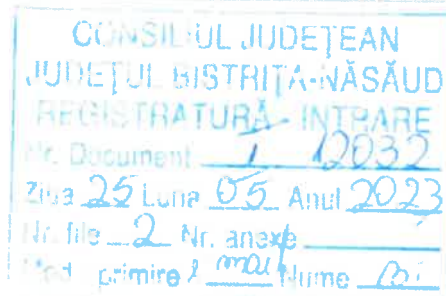 CONSILIUL JUDEŢEAN
JUDEŢUL BISTRIŢA-NĂSĂUD
REGISTRATURĂ - INTRARE
Nr. Document I 12032
Ziua 25 Luna 05 Anul 2023
Nr. file 2 Nr. anexe
Mod primire mail Nume